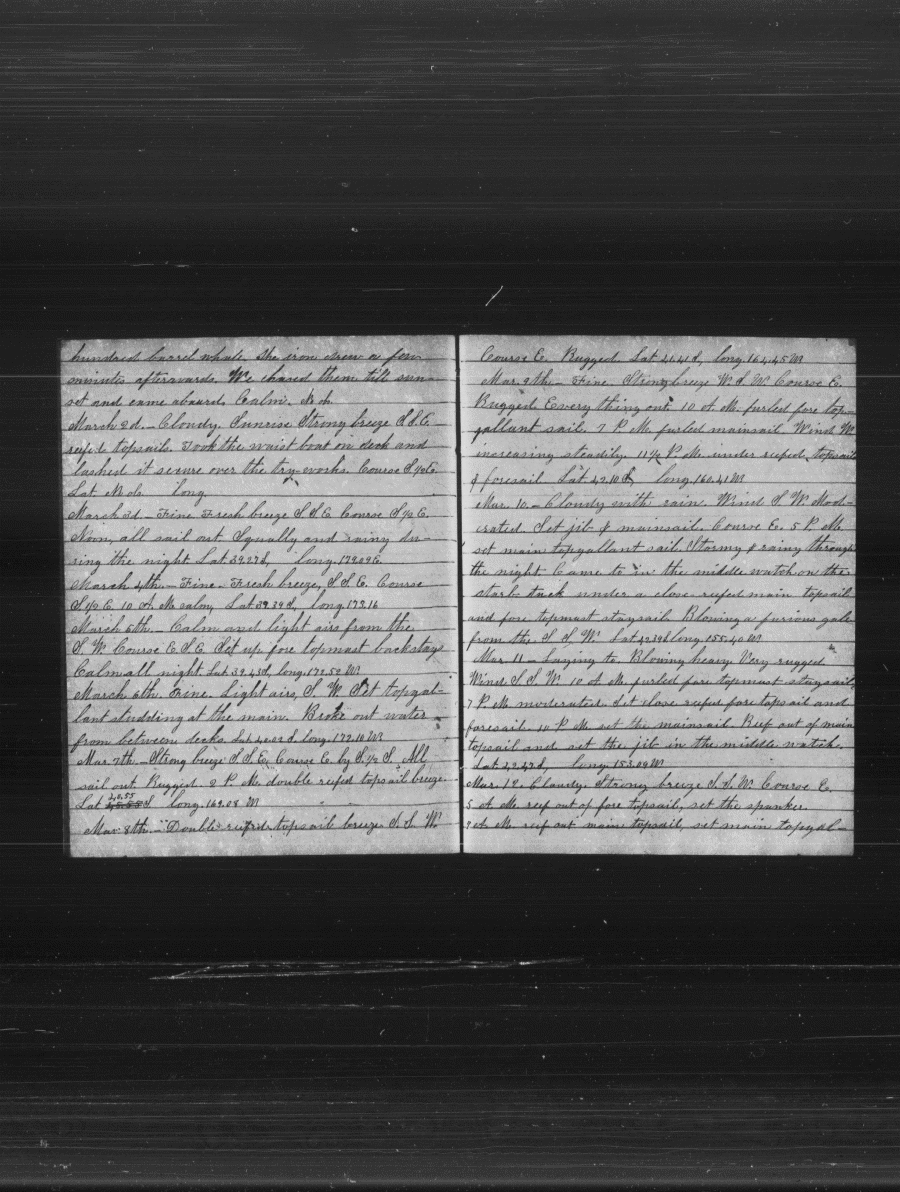 hundred barrel whale. The iron drew a few
minutes afterwards. We chased them till sun-
set and came aboard. Calm. No ob.
March 2d. – Cloudy. Sunrise Strong breeze S.S.E.
reef'd topsails. Took the waist boat on deck and
lashed it secure over the try-works. Course S ½ E
Lat No ob long
March 3d – Fine Fresh breeze S.S.E. Course S ½ E.
Noon, all sail out. Squally and rainy du-
ring the night Lat 39.27 S, long. 179.09 E.
March 4th. – Fine. Fresh breeze, S.S.E. Course
S ½ E. 10 A. M. calm, Lat 39.39 S, long. 179.16
March 5th. – Calm and light airs from the
S. W. Course E.S.E. Set up fore topmast backstays
Calm all night. Lat 39.43 S, long. 178.52 W.
March 6th. Fine. Light airs, S. W. Set topgal-
lant studding at the main. Broke out water
from between decks. Lat 40.02 S long. 172.10 W
Mar 7th. – Strong breeze S.S.E. Course E. by S. ½ S. All
sail out. Rugged. 2 P. M. double reefed topsail breeze.
40.55
Lat S long. 169.08 W
Mar 8th. – Double reefed topsail breeze S. S. W.
Course E. Rugged Lat 41.41 S, long. 164.45 W
Mar. 9th. – Fine. Strong breeze W. S. W. Course E.
Rugged. Every thing out. 10 A. M. furled fore top-
gallant sail. 7 P. M. furled mainsail. Wind W.
increasing steadily. 11 ½ P. M. under reefed topsails
& foresail Lat 42.10 S, long. 160.41 W
Mar. 10. – Cloudy with rain. Wind S. W. Mod-
erated. Set jib & mainsail. Course E. 5 P. M.
set main topgallant sail. Stormy & rainy through
the night. Came to in the middle watch on the
starb. tack under a close reefed main topsail
and fore topmast staysail. Blowing a furious gale
from the S. S. W. Lat 42.39 S long. 155.40 W
Mar. 11 – Laying to. Blowing heavy. Very rugged
Wind S. S. W. 10 A. M. furled fore topmast staysail,
7 P. M. moderated. Set close reefed fore topsail and
foresail. 10 P. M. set the mainsail. Reef out of main
topsail and set the jib in the middle watch.
Lat 42.47 S, long 153.09 W
Mar. 12. Cloudy. Strong breeze S. S. W. Course E.
5 A. M. reef out of fore topsail, set the spanker.
9 A. M. reef out main topsail, set main topgal-